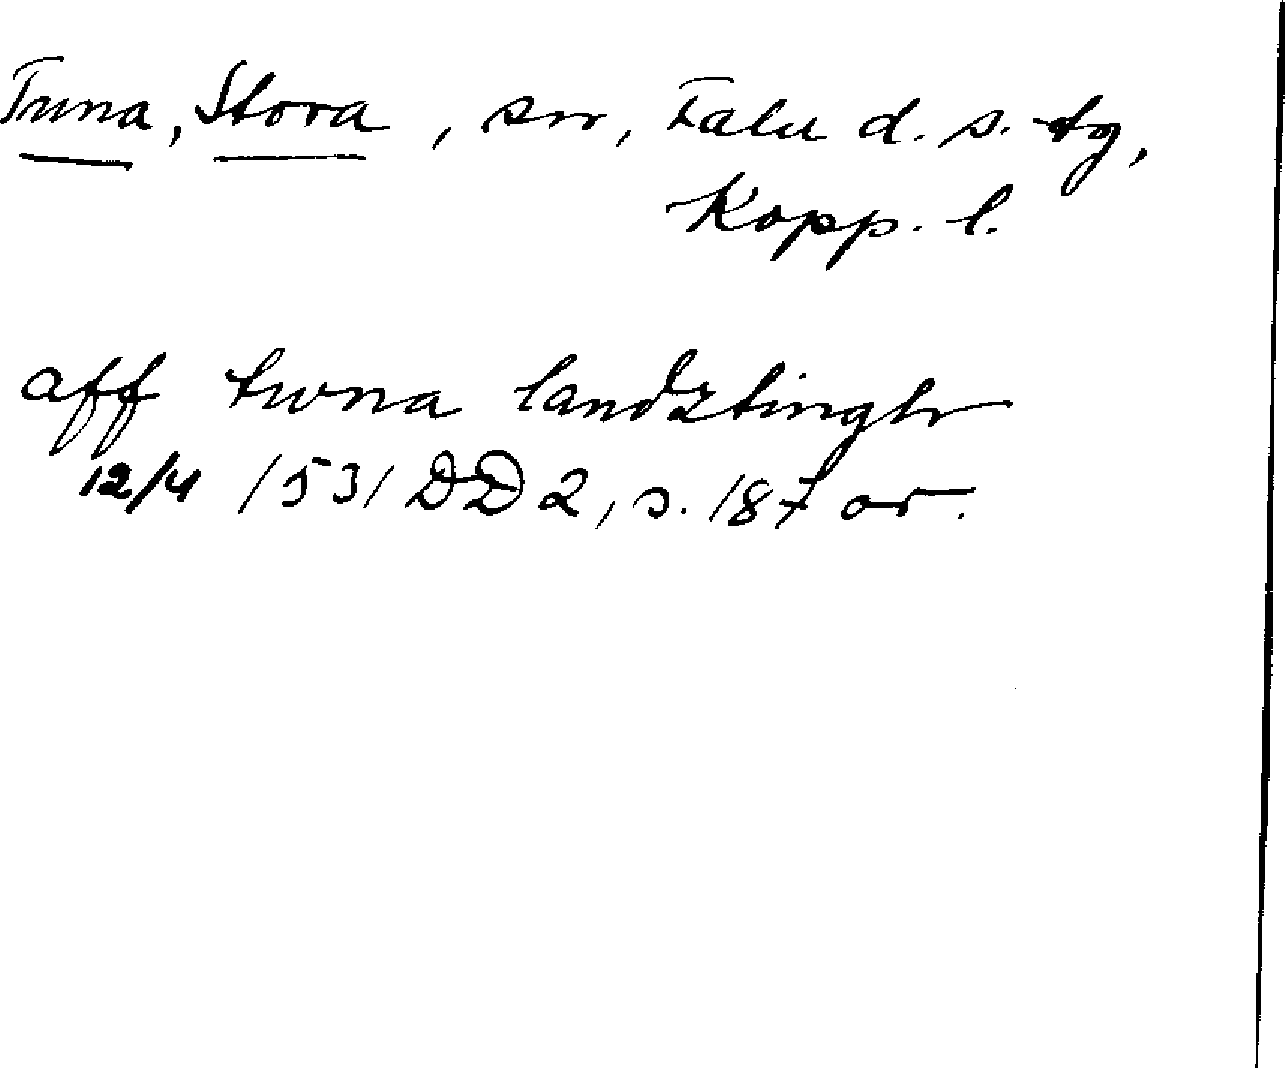 Tuna, Stora, sn, Falu d. s. tg,
Kopp. l.
aff twna landztingh
12/4 1531 DD 2, s. 187 or.